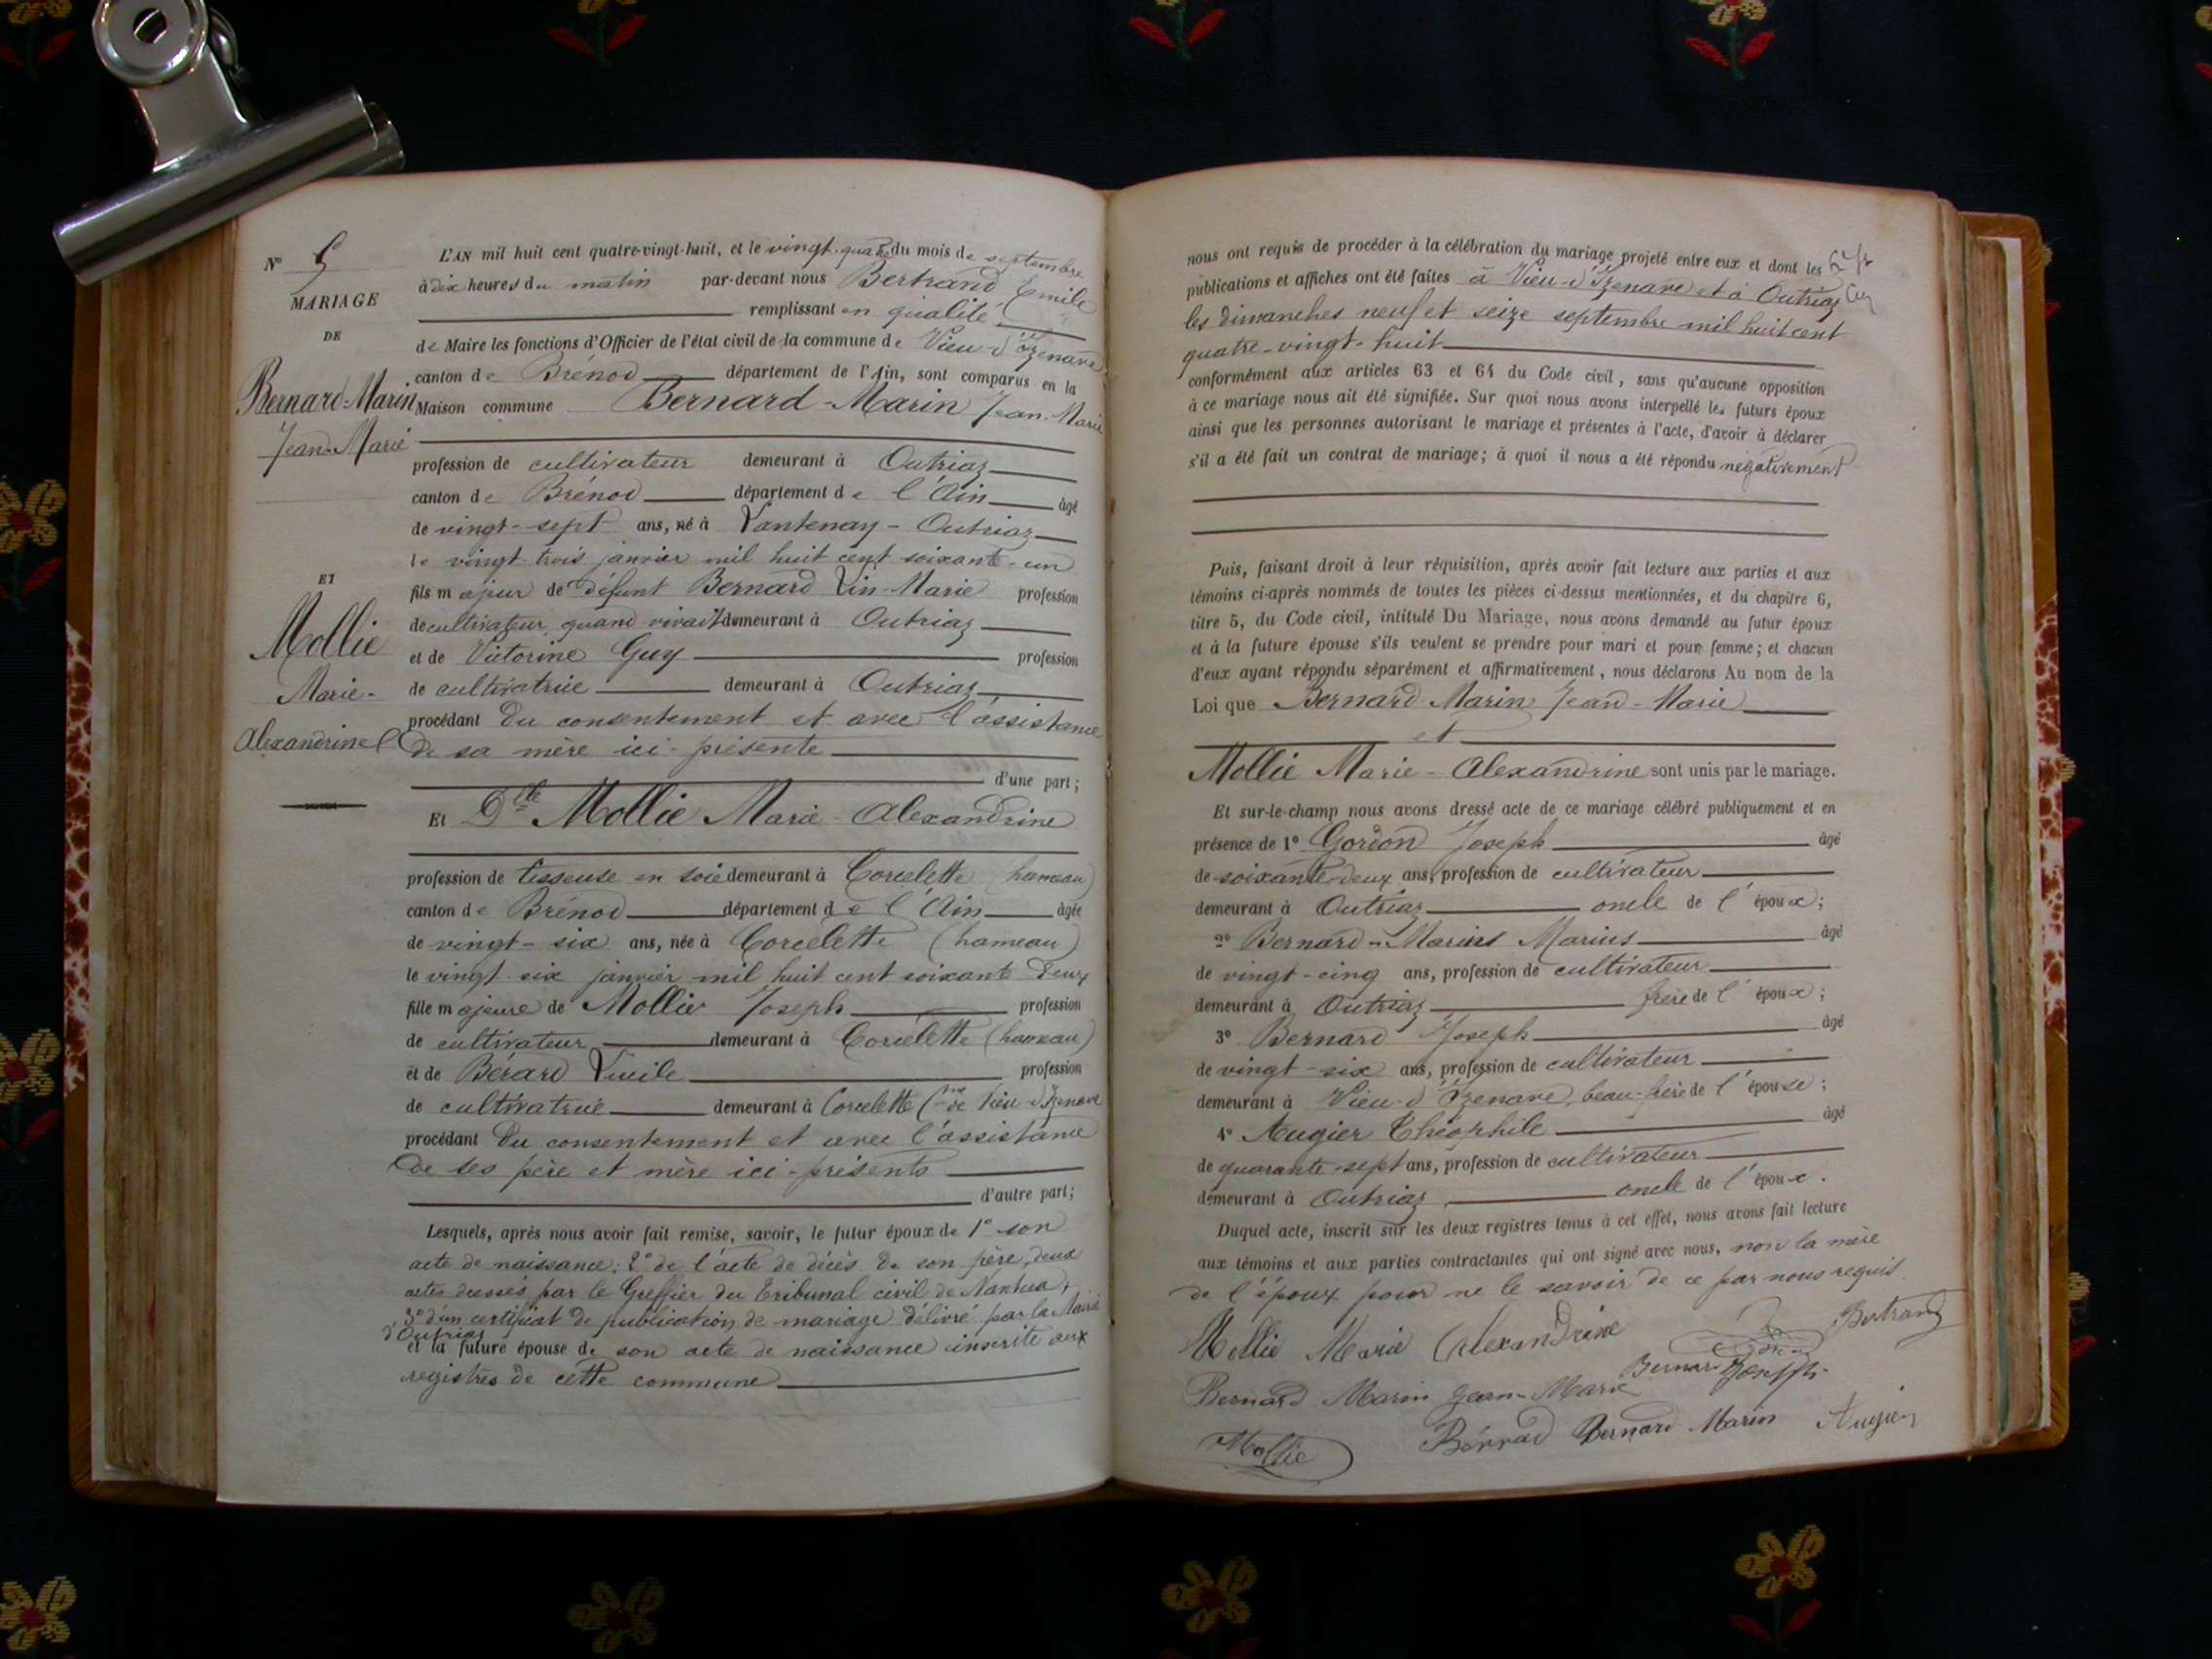 N° 5
MARIAGE
DE
Bernard-Marin
Jean-Marie
ET
Mollie
Marie-
Alexandrine
L'AN mil huit cent quatre-vingt-huit, et le vingt-quatre du mois de septembre
à dix heures du matin par-devant nous Bertrand Emile
remplissant en qualité
de Maire les fonctions d'Officier de l'état civil de la commune de Vieu-d'Izenave
canton de Brénod département de l'Ain, sont comparus en la
Maison commune Bernard-Marin Jean-Marie
profession de cultivateur demeurant à Outriaz
canton de Brénod département de l'Ain âgé
de vingt-sept ans, né à Lantenay-Outriaz
le vingt-trois janvier mil huit cent soixante-un
fils majeur de défunt Bernard Lin-Marie profession
de cultivateur quand vivait demeurant à Outriaz
et de Victorine Guy profession
de cultivatrice demeurant à Outriaz
procédant du consentement et avec l'assistance
de sa mère ici-présente
d'une part;
Et Dlle Mollie Marie-Alexandrine
profession de tisseuse en soie demeurant à Corcelette (hameau)
canton de Brénod département de l'Ain âgée
de vingt-six ans, née à Corcelette (hameau)
le vingt-six janvier mil huit cent soixante deux
fille majeure de Mollie Joseph profession
de cultivateur demeurant à Corcelette (hameau)
et de Bérard Lucile profession
de cultivatrice demeurant à Corcelette (cne de Vieu-d'Izenave
procédant du consentement et avec l'assistance
de ses père et mère ici-présents
d'autre part;
Lesquels, après nous avoir fait remise, savoir, le futur époux de 1° son
acte de naissance; 2° de l'acte de décès de son père, deux
actes dressés par le Greffier du Tribunal civil de Nantua,
3° d'un certificat de publication de mariage délivré par la Mairie
d'Outriaz
et la future épouse de son acte de naissance inscrite aux
registres de cette commune
nous ont requis de procéder à la célébration du mariage projeté entre eux et dont les
publications et affiches ont été faites à Vieu-d'Izenave et à Outriaz
les dimanches neuf et seize septembre mil huit cent
quatre-vingt-huit
conformément aux articles 63 et 64 du Code civil, sans qu'aucune opposition
à ce mariage nous ait été signifiée. Sur quoi nous avons interpellé les futurs époux
ainsi que les personnes autorisant le mariage et présentes à l'acte, d'avoir à déclarer
s'il a été fait un contrat de mariage; à quoi il nous a été répondu négativement
Puis, faisant droit à leur réquisition, après avoir fait lecture aux parties et aux
témoins ci-après nommés de toutes les pièces ci-dessus mentionnées, et du chapitre 6,
titre 5, du Code civil, intitulé Du Mariage, nous avons demandé au futur époux
et à la future épouse s'ils veulent se prendre pour mari et pour femme; et chacun
d'eux ayant répondu séparément et affirmativement, nous déclarons Au nom de la
Loi que Bernard-Marin Jean-Marie
et
Mollie Marie-Alexandrine sont unis par le mariage.
Et sur-le-champ nous avons dressé acte de ce mariage célébré publiquement et en
présence de 1° Gordon Joseph âgé
de soixante-deux ans, profession de cultivateur
demeurant à Outriaz oncle de l'époux;
2° Bernard-Marin Marius âgé
de vingt-cinq ans, profession de cultivateur
demeurant à Outriaz frère de l'époux;
3° Bernard Joseph âgé
de vingt-six ans, profession de cultivateur
demeurant à Vieu-d'Izenave, beau-frère de l'épouse;
4° Augier Théophile âgé
de quarante-sept ans, profession de cultivateur
demeurant à Outriaz oncle de l'époux.
Duquel acte, inscrit sur les deux registres tenus à cet effet, nous avons fait lecture
aux témoins et aux parties contractantes qui ont signé avec nous, non la mère
de l'époux pour ne le savoir de ce par nous requis.
Mollie Marie Alexandrine Bertrand
Bernard Marin Jean-Marie Bernard Joseph
Mollie Bérrad Bernard Marin Augier